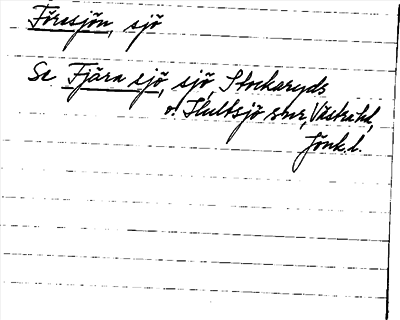 Försjön, sjö
Se Fjärasjö, sjö, Stockaryds
o. Hultsjö snr, Västra hd,
Jönk. l.